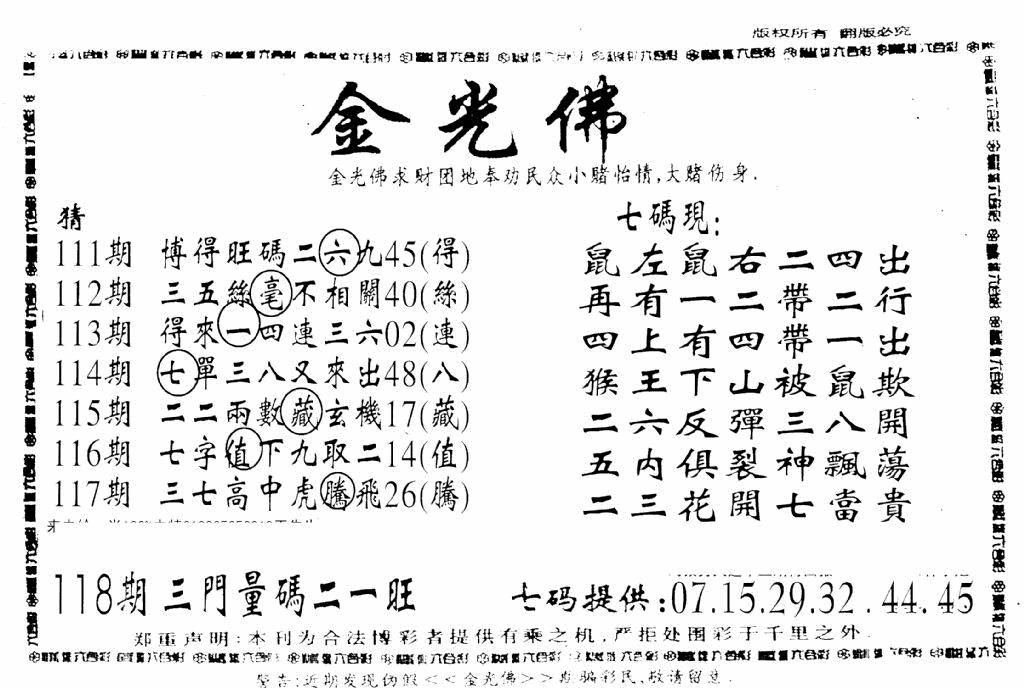 版权所有 翻版必究
金光佛
金光佛求财团地奉劝民众小赌怡情,大赌伤身.
猜
111期 博得旺碼二六九45(得)
112期 三五絲毫不相關40(絲)
113期 得來一四連三六02(連)
114期 七單三八又來出48(八)
115期 二二兩數藏玄機17(藏)
116期 七字值下九取二14(值)
117期 三七高中虎騰飛26(騰)
七碼現:
鼠左鼠右二四出
再有一二帶二行
四上有四帶一出
猴王下山被鼠欺
二六反彈三八開
五內俱裂神飄蕩
二三花開七當貴
118期 三門量碼二一旺
七码提供:07.15.29.32.44.45
郑重声明:本刊为合法博彩者提供有乘之机,严拒处围彩于千里之外.
警告:近期发现伪假<<金光佛>>专骗彩民,敬请留意.